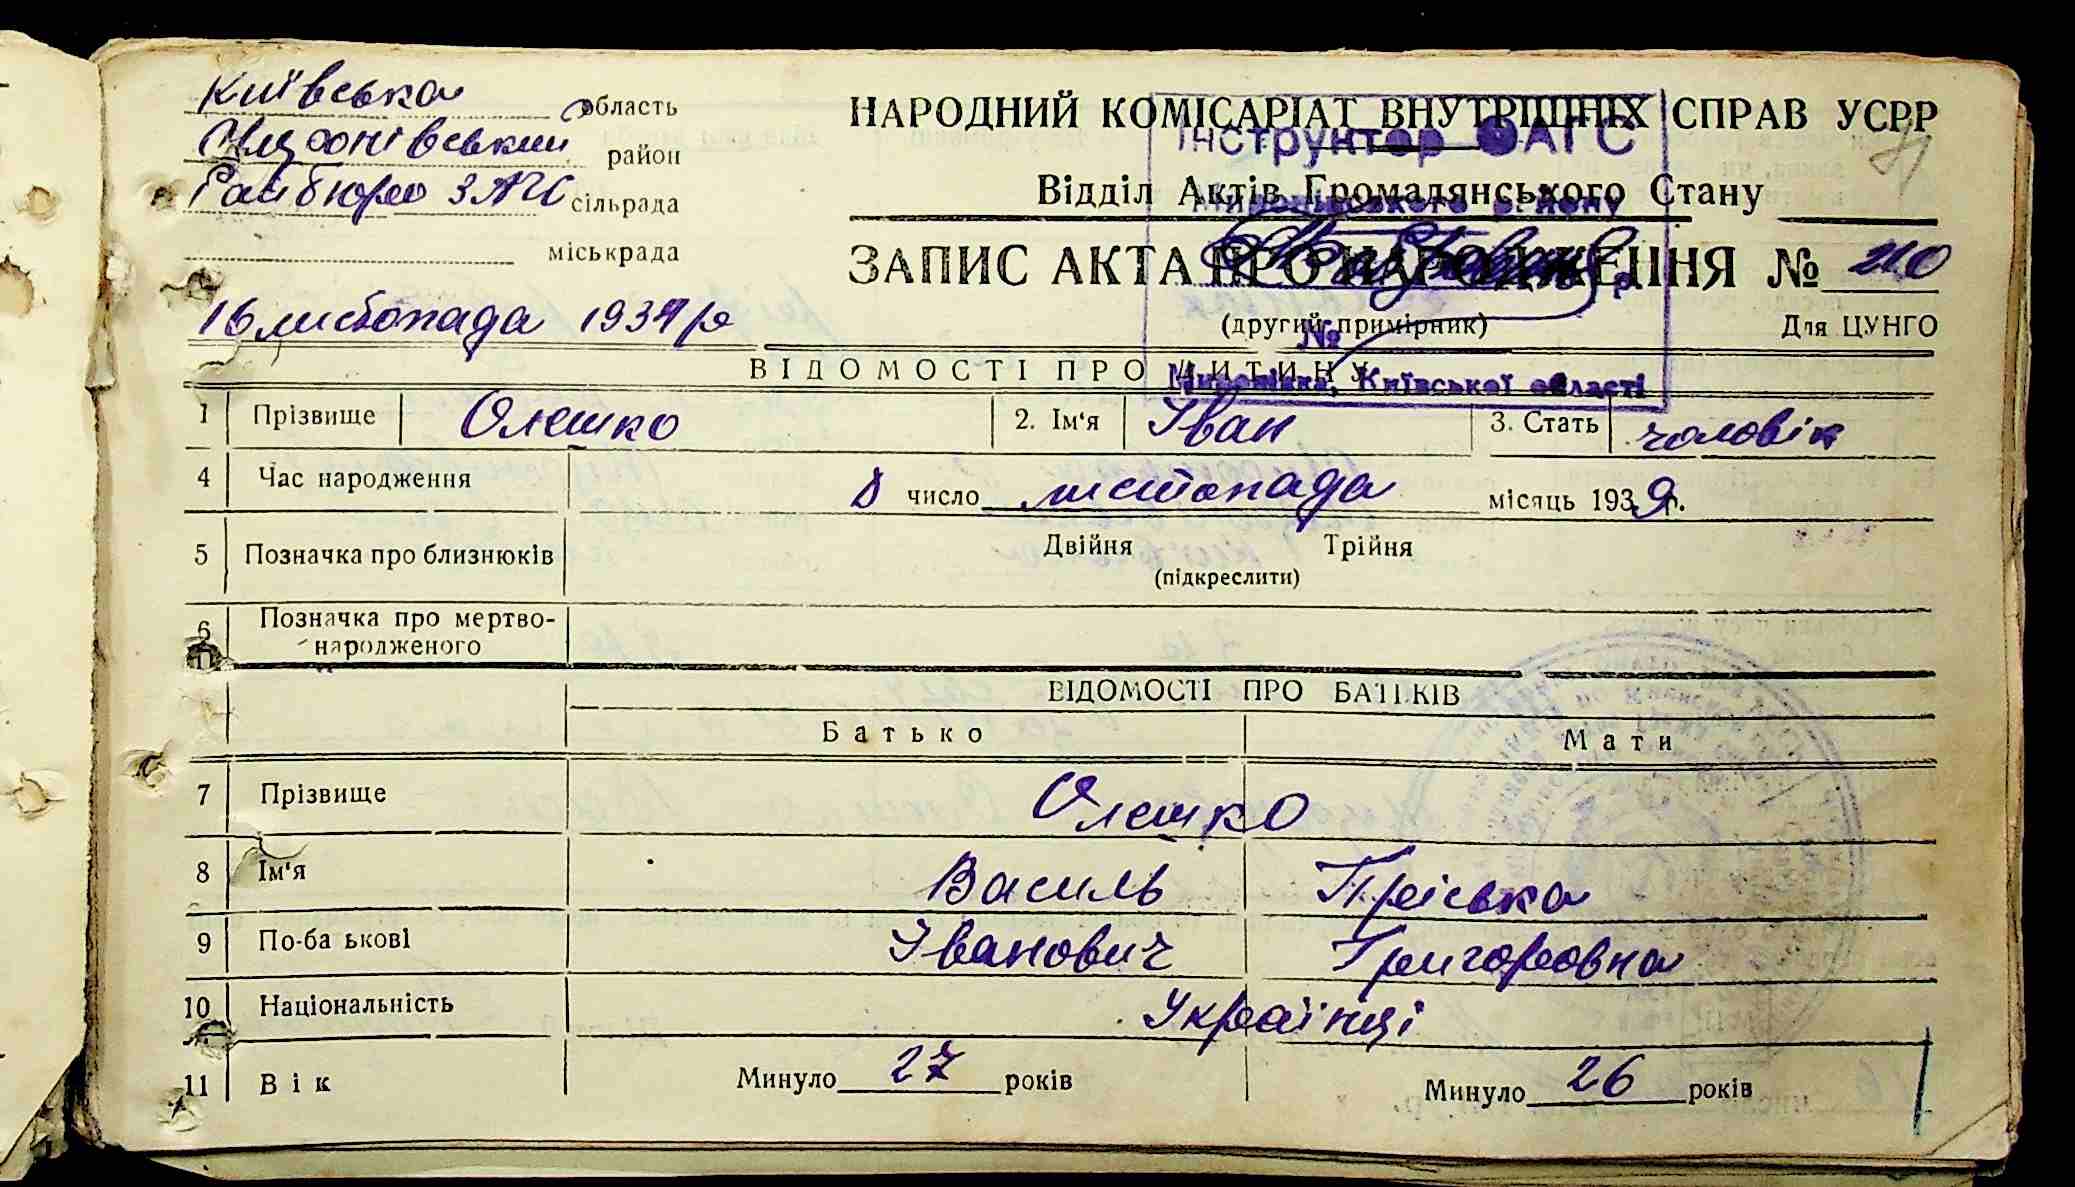 Київська область
Миронівський район
Райбюро ЗАГС сільрада
міськрада
16 листопада 1939 р
НАРОДНИЙ КОМІСАРІАТ ВНУТРІШНІХ СПРАВ УСРР
Інструктор ВАГС
Відділ Актів Громадянського Стану
Миронівського району
ЗАПИС АКТА ПРО НАРОДЖЕННЯ № 210
(другий примірник)
Для ЦУНГО
№
ВІДОМОСТІ ПРО ДИТИНУ
Миронівка, Київської області
1 Прізвище Олешко 2. Ім'я Іван 3. Стать чоловік
4 Час народження 8 число листопада місяць 1939 р.
5 Позначка про близнюків Двійня Трійня
(підкреслити)
6 Позначка про мертво-
народженого
ВІДОМОСТІ ПРО БАТЬКІВ
Батько Мати
7 Прізвище Олешко
8 Ім'я Василь Пріська
9 По-ба ькові Іванович Григоровна
10 Національність Українці
11 Вік Минуло 27 років Минуло 26 років